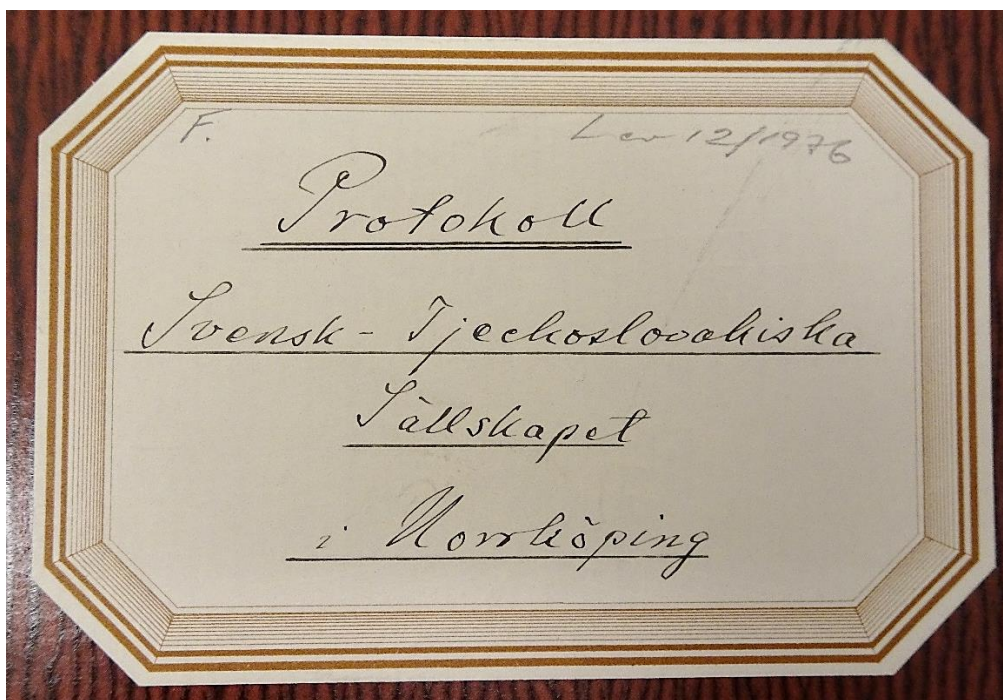 F. Lev 12/1976
Protokoll
Svensk-Tjeckoslovakiska
Sällskapet
i Norrköping